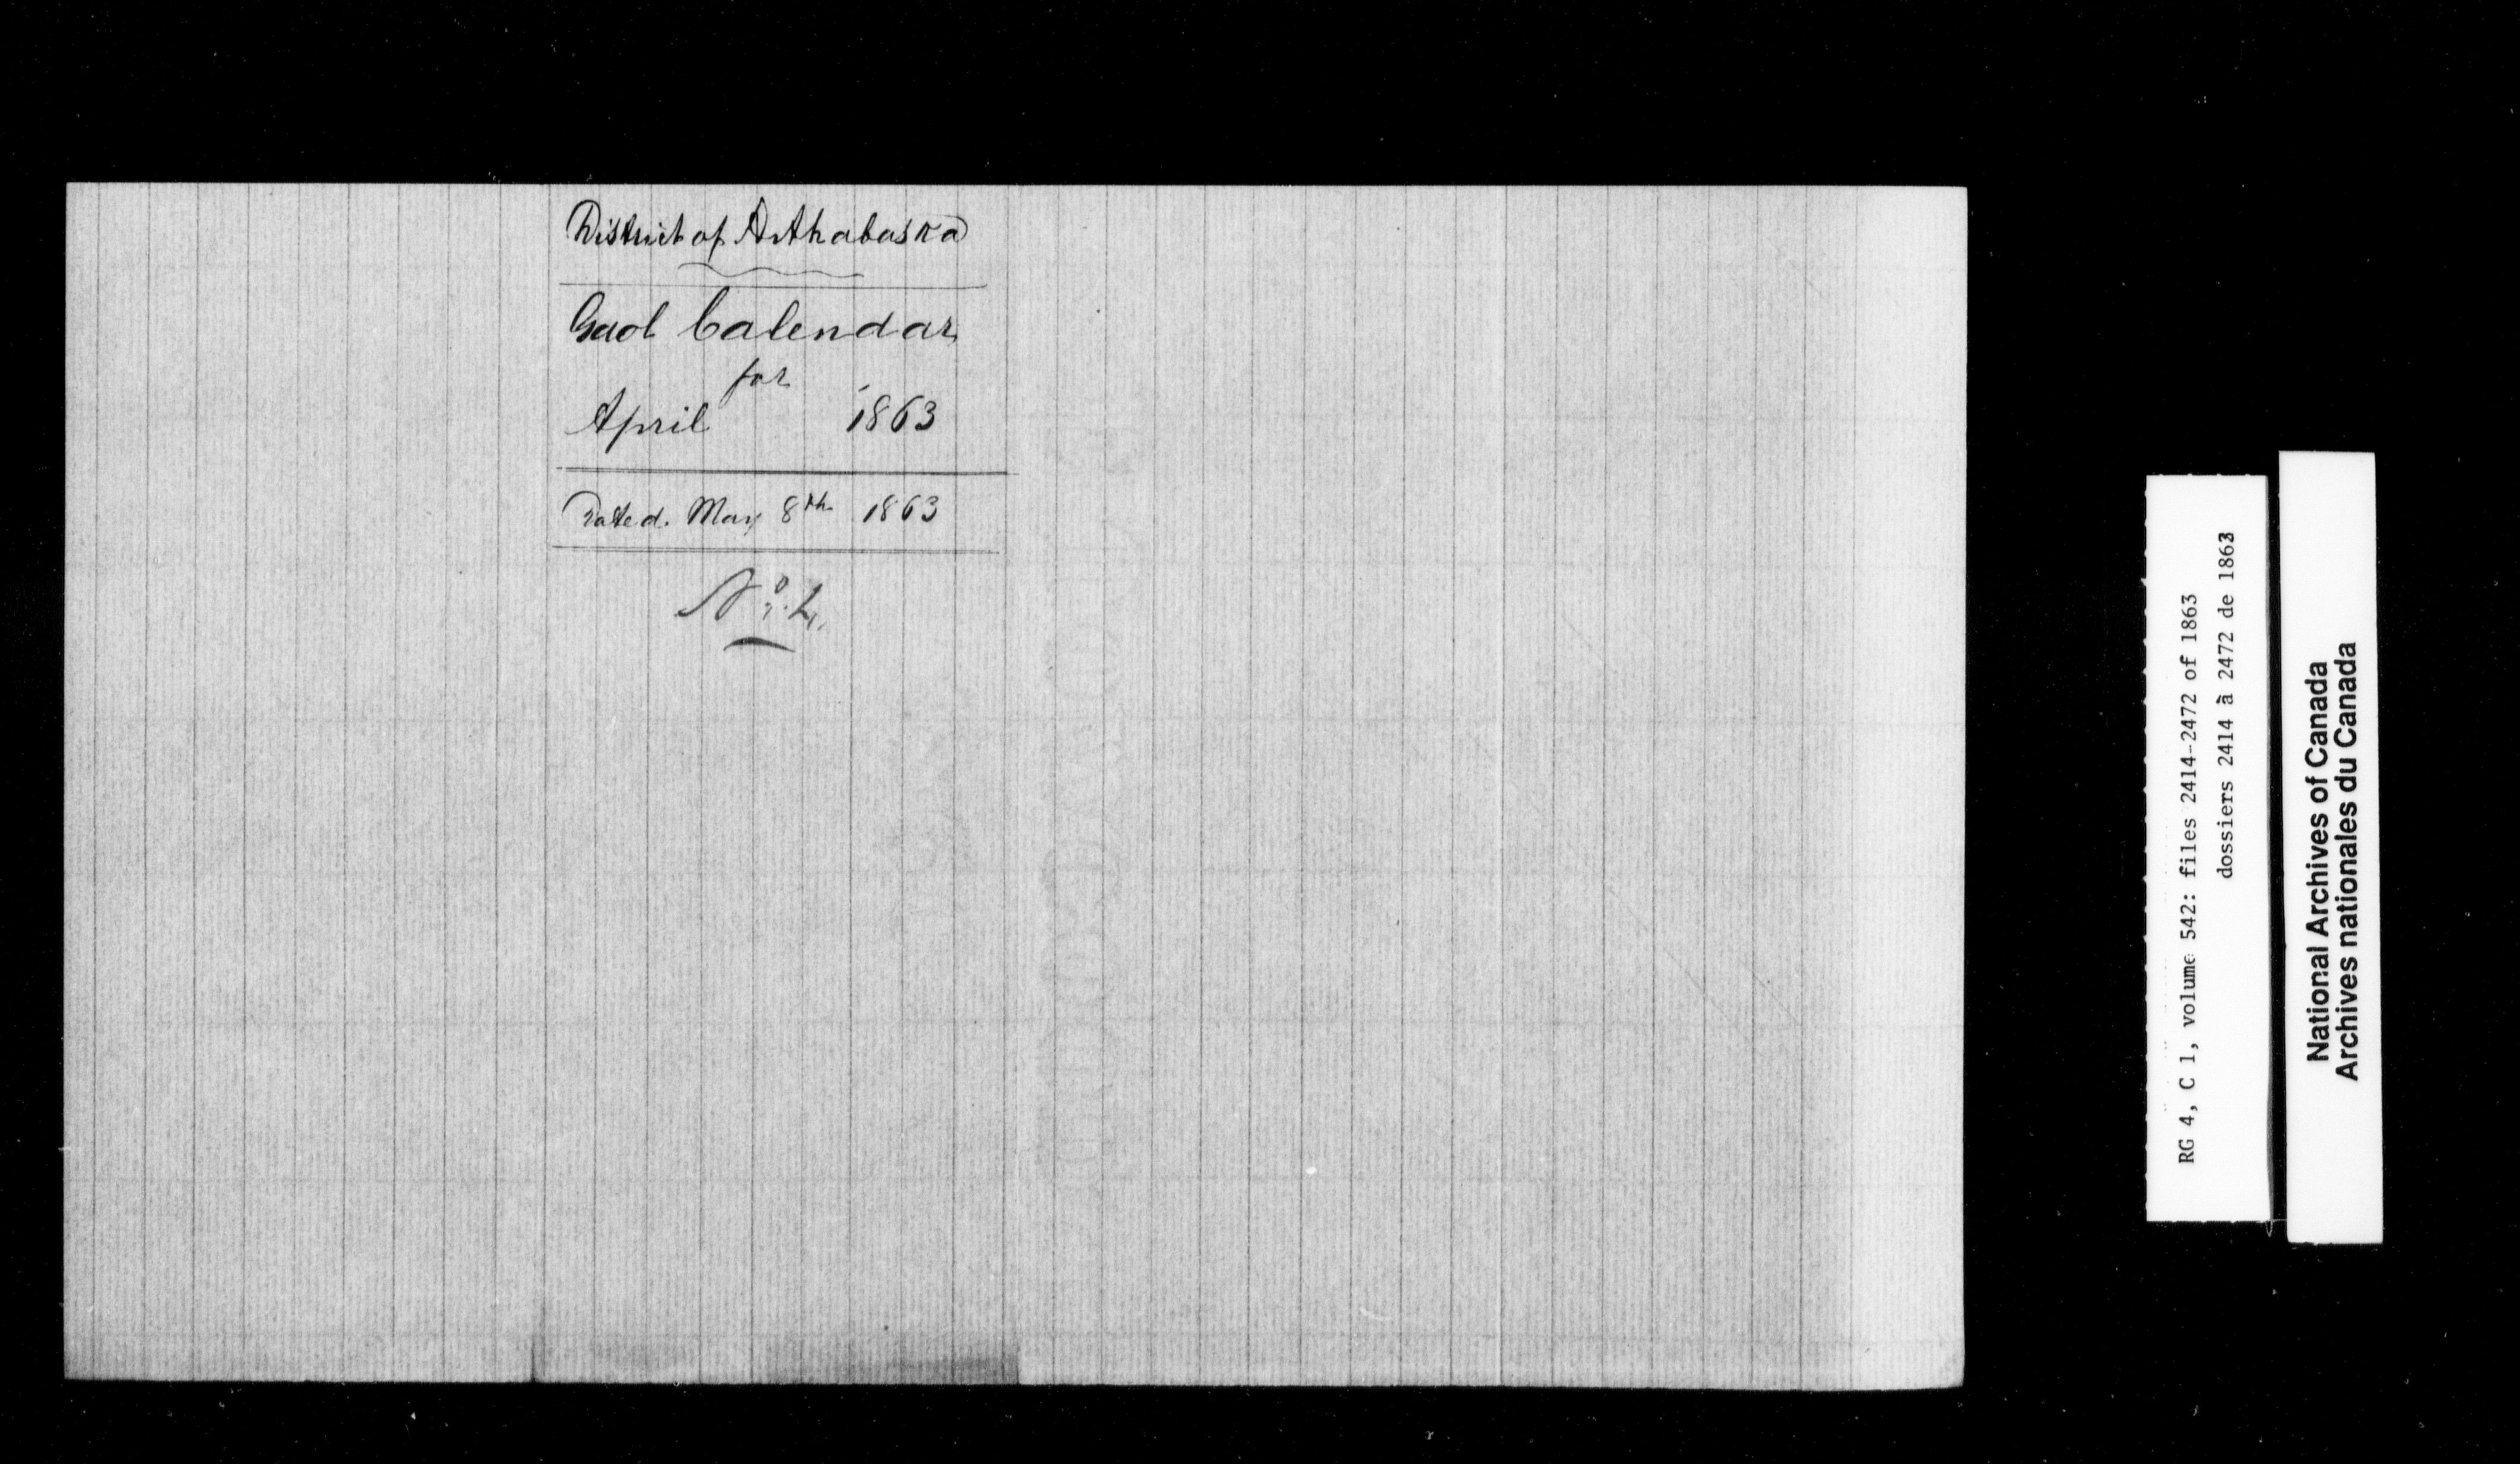 District of Arthabaska
Gaol Calendar
for
April 1863
Dated. May 8th 1863
No. 4.
RG 4, C 1, volume 542: files 2414-2472 of 1863
dossiers 2414 à 2472 de 1863
National Archives of Canada
Archives nationales du Canada